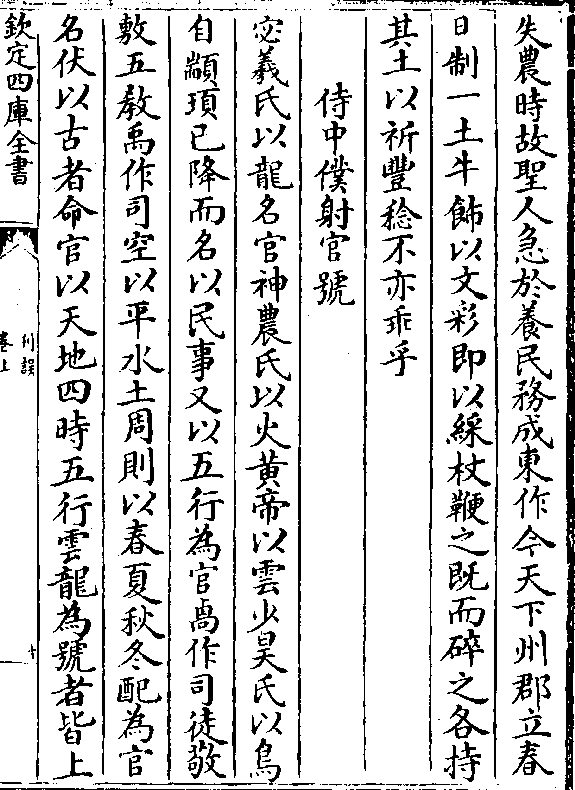 失農時故聖人急於養民務成東作今天下州郡立春
日制一土牛飾以文彩即以綵杖鞭之既而碎之各持
其土以祈豐稔不亦乖乎
侍中僕射官號
宓羲氏以龍名官神農氏以火黄帝以雲少昊氏以鳥
自顓頊已降而名以民事又以五行為官卨作司徒敬
敷五敎禹作司空以平水土周則以春夏秋冬配為官
名伏以古者命官以天地四時五行雲龍為號者皆上
欽定四庫全書
刋誤
卷上
十